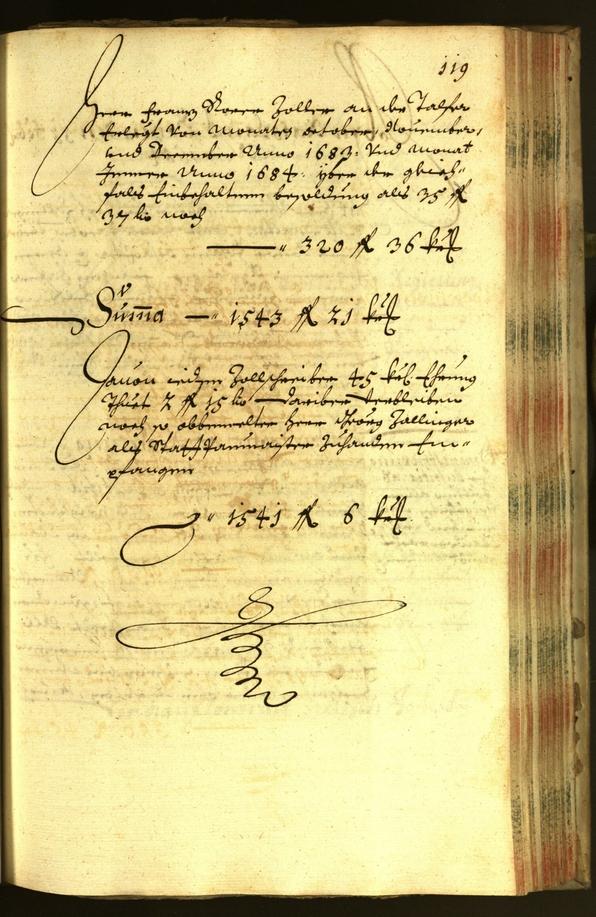 119
Herr Franz Zoller an der Talfer
Erlegt von Monaten october, November,
und December Anno 1683. Vnd Monat
Jenner Anno 1684. yber der gleich-
fals Einbehaltnen besoldung als 35 fl
37 kr noch
320 fl 36 kr
Summa 1543 fl 21 kr
Dauon iedem Zollschreiber 45 kr Ehrung
Thuet 2 fl 15 kr darüber verbleiben
noch so obbemelter Herr Georg Zallinger
als Statt Paumaister zuhanden Em-
pfangen
1541 fl 6 kr